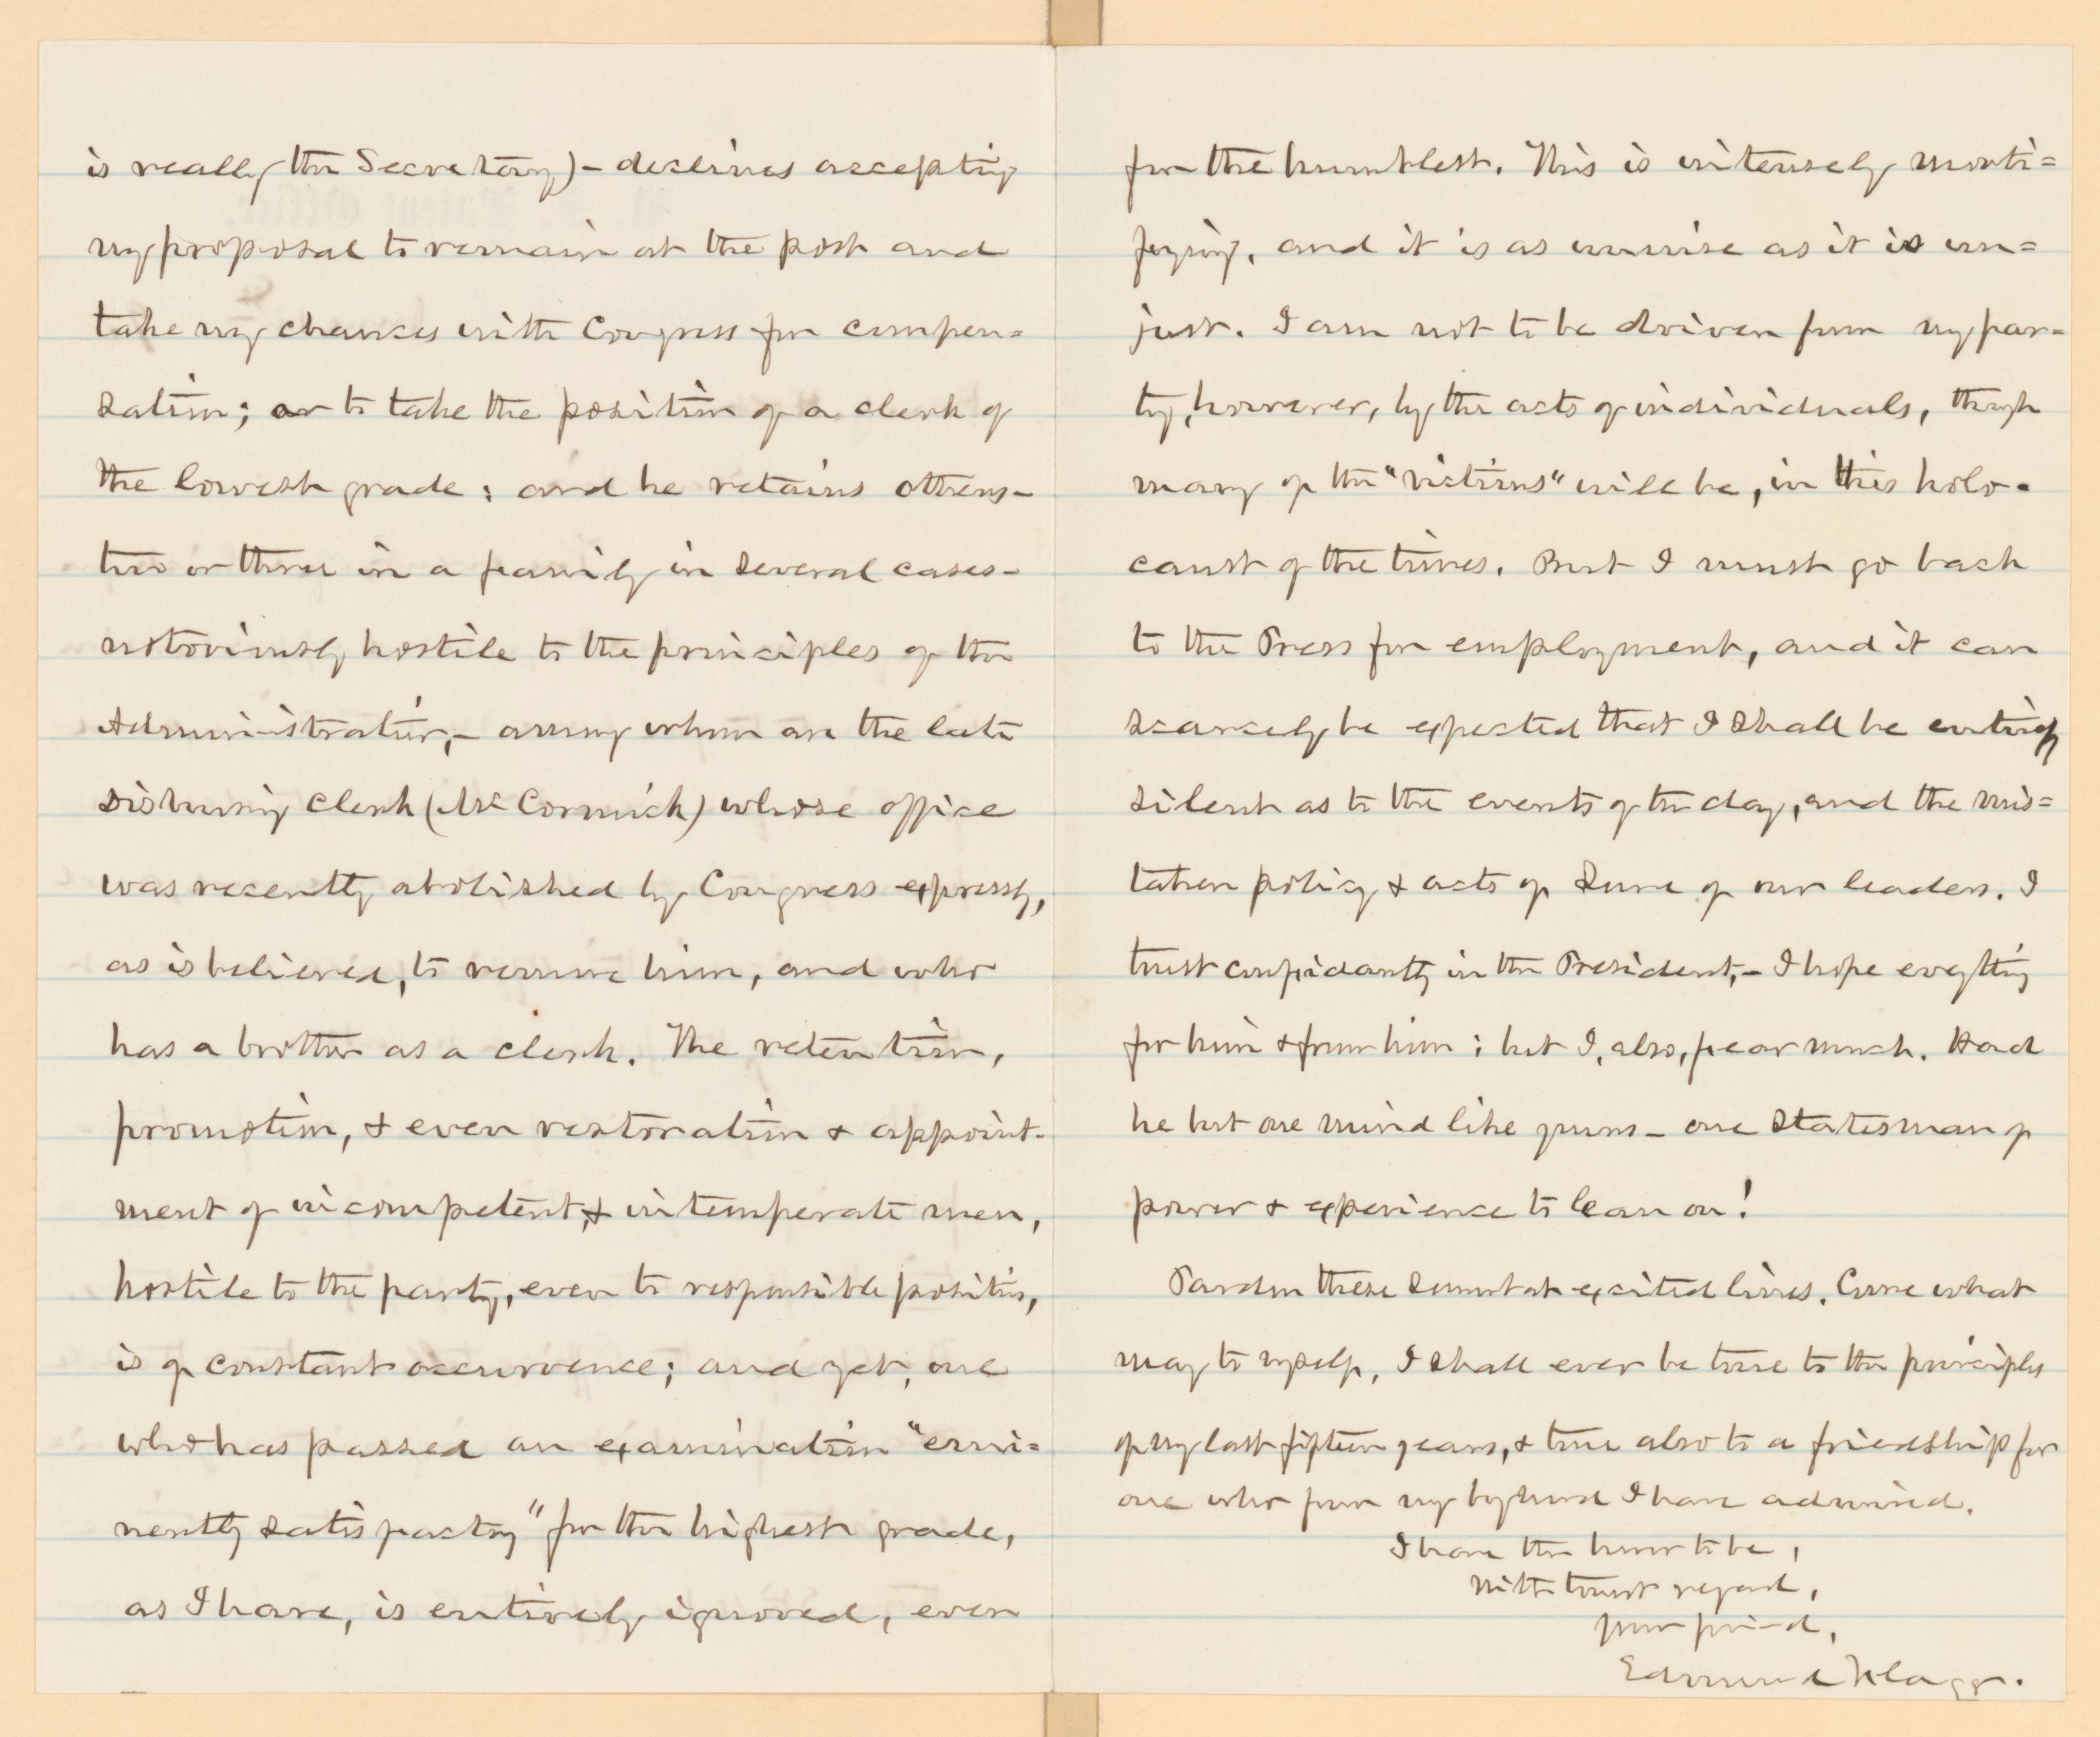 is really the Secretary) – declines accepting
my proposal to remain at the post and
take my chances with Congress for compen=
sation; or to take the position of a clerk of
the lowest grade: and he retains others –
two or three in a family in several cases –
notoriously hostile to the principles of the
Administration, – among whom are the late
Disbursing Clerk (McCormick) whose office
was recently abolished by Congress expressly,
as is believed, to remove him, and who
has a brother as a clerk. The retention,
promotion, & even restoration & appoint-
ment of incompetent, & intemperate men,
hostile to the party, even to responsible positions,
is of constant occurrence; and yet, one
who has passed an examination "emi=
nently satisfactory" for the highest grade,
as I have, is entirely ignored, even
for the humblest. This is intensely morti=
fying, and it is as unwise as it is un=
just. I am not to be driven from my par=
ty, however, by the acts of individuals, though
many of the "victims" will be, in this holo-
caust of the times. But I must go back
to the Press for employment, and it can
scarcely be expected that I shall be entirely
silent as to the events of the day, and the mis=
taken policy & acts of some of our leaders. I
trust confidantly in the President, – I hope everything
for him & from him; but I, also, fear much. Had
he but one mind like yours – one Statesman of
power & experience to lean on!
Pardon these somewhat excited lines. Come what
may to myself, I shall ever be true to the principles
of my last fifteen years, & true also to a friendship for
one who from my boyhood I have admired.
I have the honor to be,
With truest regard,
Your friend,
Edmund Flagg.